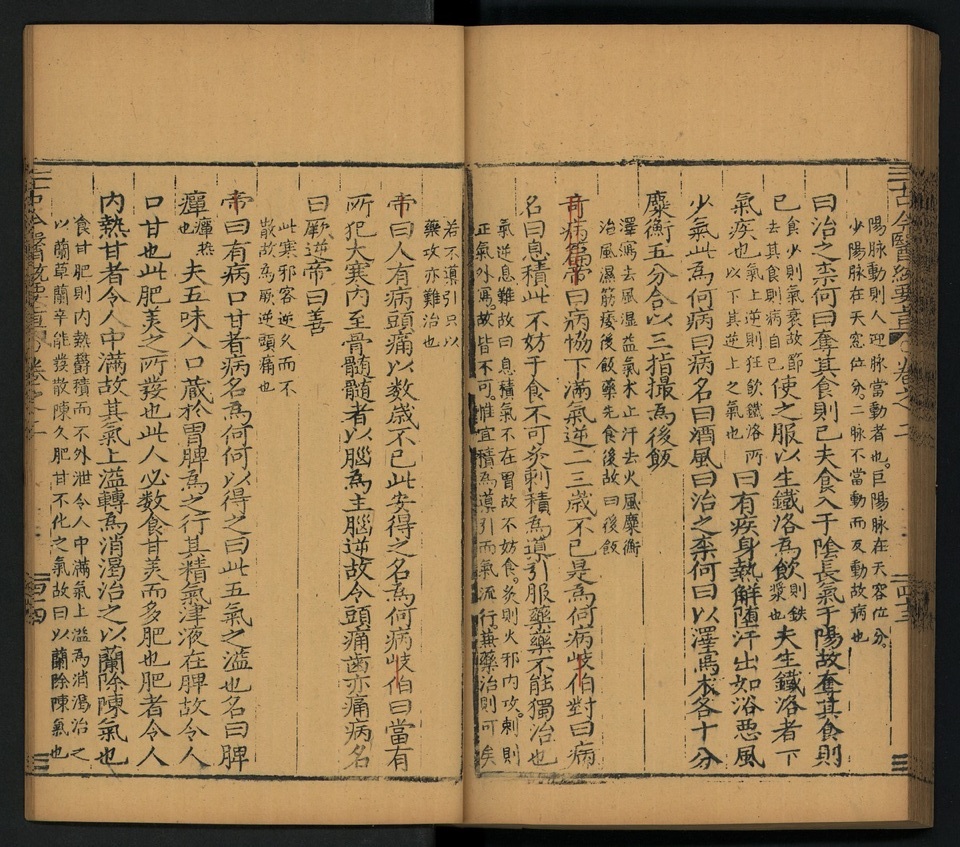 陽脉動則人迎脉當動者也巨陽脉在天容位分
少陽脉在天窓位分二脉不當動而反動故病也
曰治之柰何曰奪其食則已夫食入于陰長氣于陽故奪其食則
已食少則氣衰故節去其食則病自已使之服以生鐵洛為飲則鉄漿也夫生鐵洛者下
氣疾也以氣上逆則狂飲鐵洛所以下其逆上之氣也曰有疾身熱解㑊汗出如浴惡風
少氣此為何病曰病名曰酒風曰治之柰何曰以澤瀉朮各十分
麋衡五分合以三指撮為後飯
澤瀉去風湿益氣朮止汗去火風麋衡
治風濕筋痿後飯藥先食後故曰後飯
奇病篇帝曰病脇下滿氣逆二三歲不已是為何病岐伯對曰病
名曰息積此不妨于食不可灸刺積為導引服藥藥不能獨治也
氣逆息難故曰息積氣不在胃故不妨食灸則火邪内攻刺則
正氣外㵼故皆不可惟宜積為導引而氣流行兼藥治則可矣
若不導引只以
藥攻亦難治也
帝曰人有病頭痛以数歳不已此安得之名為何病岐伯曰當有
所犯大寒内至骨髓髓者以腦為主腦逆故令頭痛齒亦痛病名
曰厥逆帝曰善
此寒邪客逆久而不
散故為厥逆頭痛也
帝曰有病口甘者病名為何何以得之曰此五氣之溢也名曰脾
癉癉熱也夫五味入口藏於胃脾為之行其精氣津液在脾故令人
口甘也此肥美之所發也此人必数食甘美而多肥也肥者令人
内熱甘者令人中滿故其氣上溢轉為消渴治之以蘭除陳氣也
食甘肥則内熱欝積而不外泄令人中滿氣上溢為消渴治之
以蘭草蘭辛能發散陳久肥甘不化之氣故曰以蘭除陳氣也